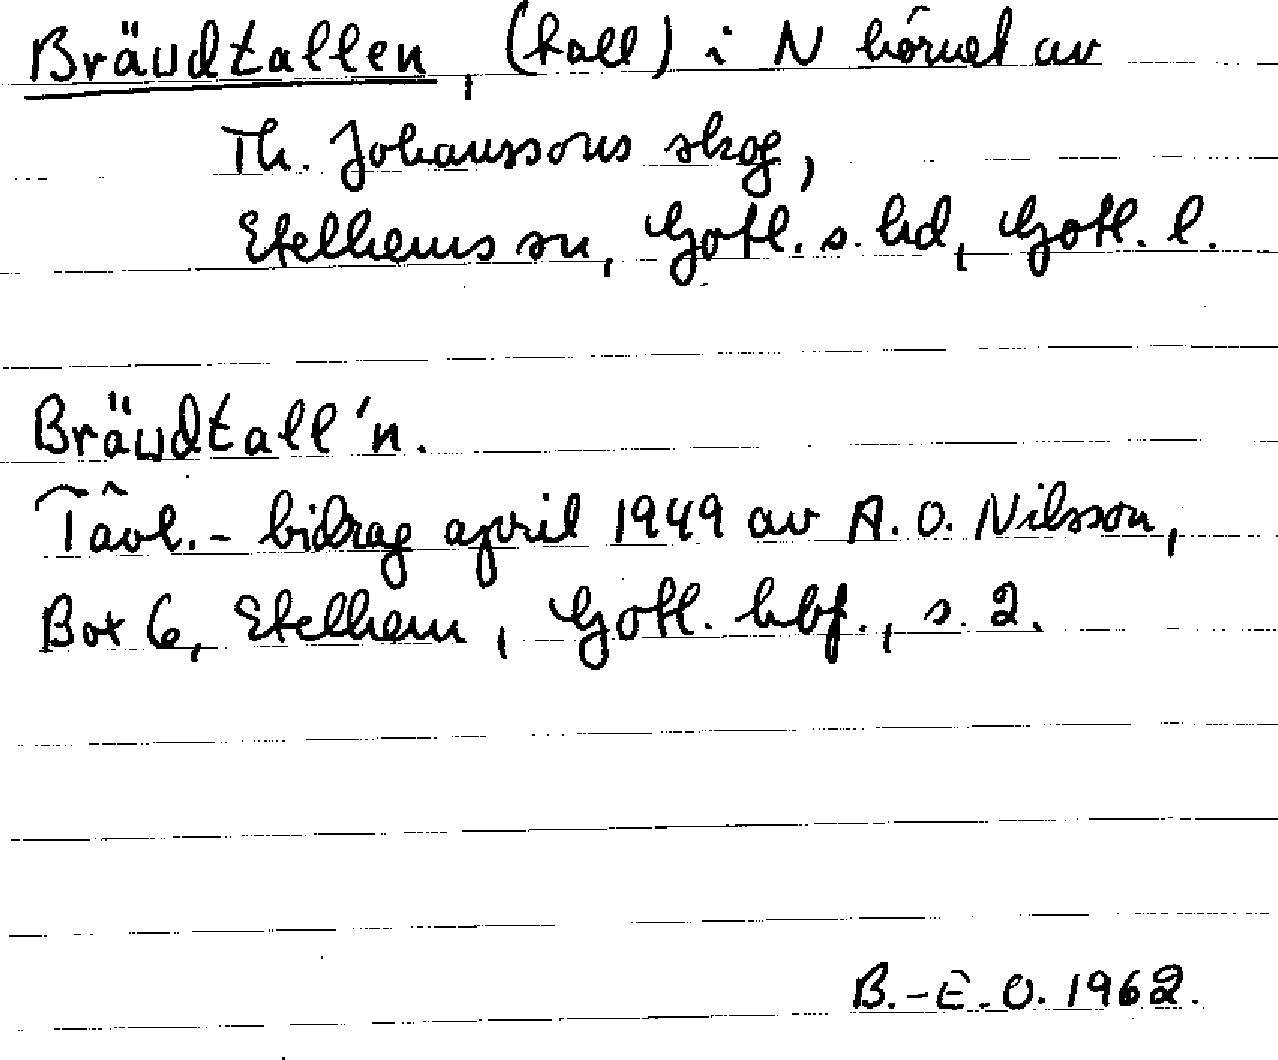 Brändtallen, (tall) i N hörnet av
Th. Johanssons skog,
Etelhems sn, Gotl. s. hd, Gotl. l.
Brändtall'n.
Tävl.- bidrag april 1949 av A. O. Nilsson,
Box 6, Etelhem, Gotl. hbf., s. 2.
B.-E.O. 1962.